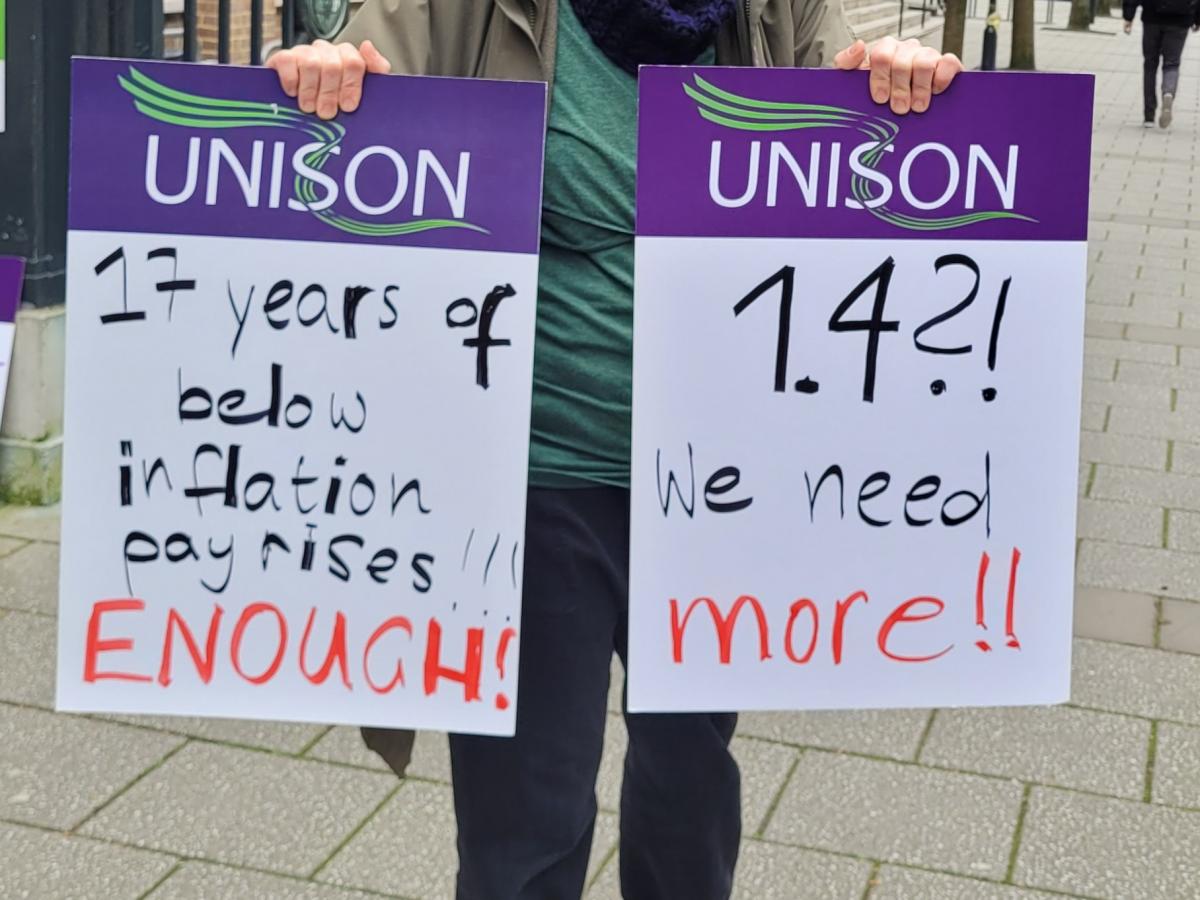 UNISON
17 years of
below
inflation
pay rises !!!
ENOUGH!
UNISON
1.4?!
We need
more!!